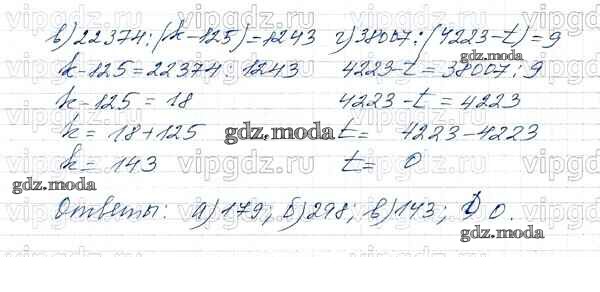 в) 22374 : (k - 125) = 1243
k - 125 = 22374 : 1243
k - 125 = 18
k = 18 + 125
k = 143
г) 38007 : (4223 - t) = 9
4223 - t = 38007 : 9
4223 - t = 4223
t = 4223 - 4223
t = 0
Ответы: а) 179; б) 298; в) 143; г) 0.
gdz.moda
gdz.moda
gdz.moda
gdz.moda
vipgdz.ru